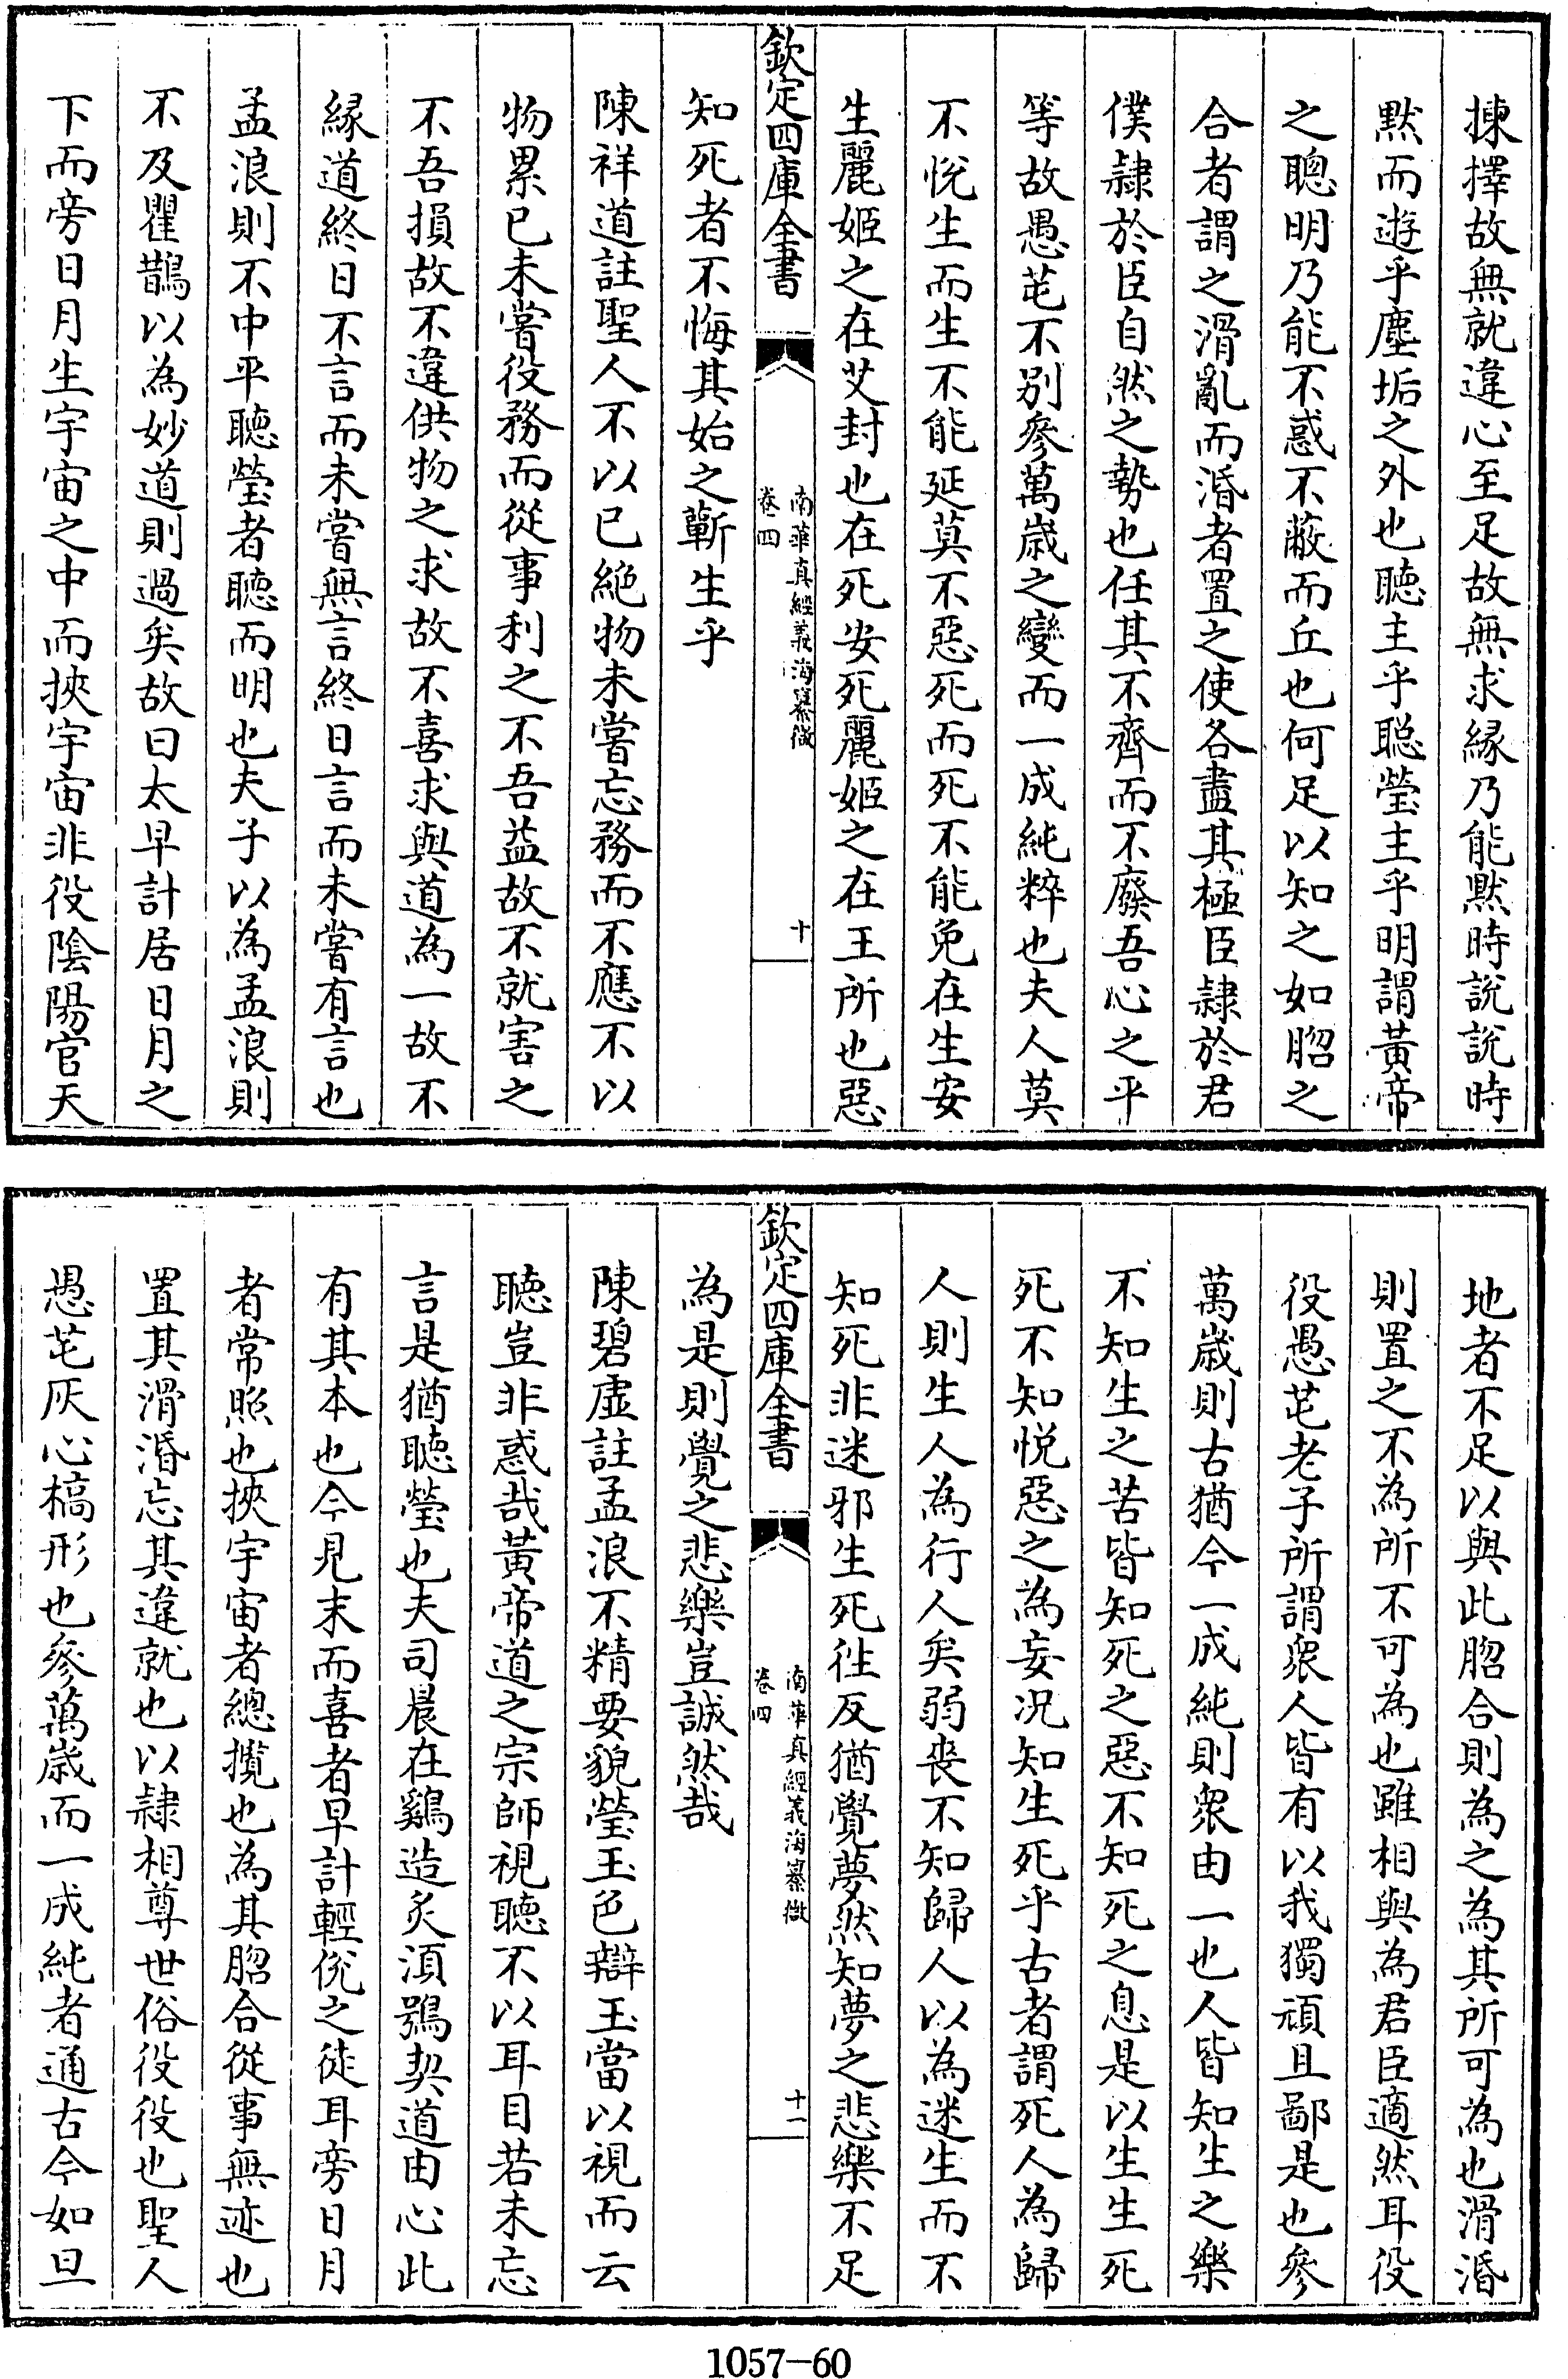 揀擇故無就違心至足故無求縁乃能黙時說說時
黙而遊乎塵垢之外也聽主乎聡瑩主乎明謂黄帝
之聰明乃能不惑不蔽而丘也何足以知之如脗之
合者謂之滑亂而湣者置之使各盡其極臣隷於君
僕隷於臣自然之勢也任其不齊而不廢吾心之平
等故愚芚不别參萬歳之變而一成純粹也夫人莫
不悅生而生不能延莫不惡死而死不能免在生安
生麗姬之在艾封也在死安死麗姬之在王所也惡
欽定四庫全書
南華真經義海纂微
卷四
十
知死者不悔其始之蘄生乎
陳祥道註聖人不以已絶物未嘗忘務而不應不以
物累已未嘗役務而從事利之不吾益故不就害之
不吾損故不違供物之求故不喜求與道為一故不
縁道終日不言而未嘗無言終日言而未嘗有言也
孟浪則不中平聽瑩者聽而明也夫子以為孟浪則
不及瞿鵲以為妙道則過矣故曰太早計居日月之
下而旁日月生宇宙之中而挾宇宙非役陰陽官天
地者不足以與此脗合則為之為其所可為也滑湣
則置之不為所不可為也雖相與為君臣適然耳役
役愚芚老子所謂衆人皆有以我獨頑且鄙是也參
萬歳則古猶今一成純則衆由一也人皆知生之樂
不知生之苦皆知死之惡不知死之息是以生生死
死不知悦惡之為妄况知生死乎古者謂死人為歸
人則生人為行人矣弱喪不知歸人以為迷生而不
知死非迷邪生死徃反猶覺夢然知夢之悲樂不足
欽定四庫全書
南華真經義海纂微
卷四
十一
為是則覺之悲樂豈誠然哉
陳碧虚註孟浪不精要貌瑩玉色辯玉當以視而云
聽豈非惑哉黄帝道之宗師視聽不以耳目若未忘
言是猶聽瑩也夫司晨在鷄造炙湏鴞契道由心此
有其本也今見末而喜者早計輕侻之徒耳旁日月
者常照也挾宇宙者總攬也為其脗合從事無迹也
置其滑湣忘其違就也以隷相尊世俗役役也聖人
愚芚灰心槁形也參萬歳而一成純者通古今如旦
1057-60